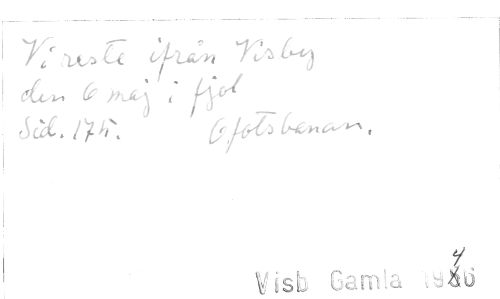 Vi reste ifrån Visby
den 6 maj i fjol
Sid. 175. Ofotsbanan.
Visb Gamla 1946